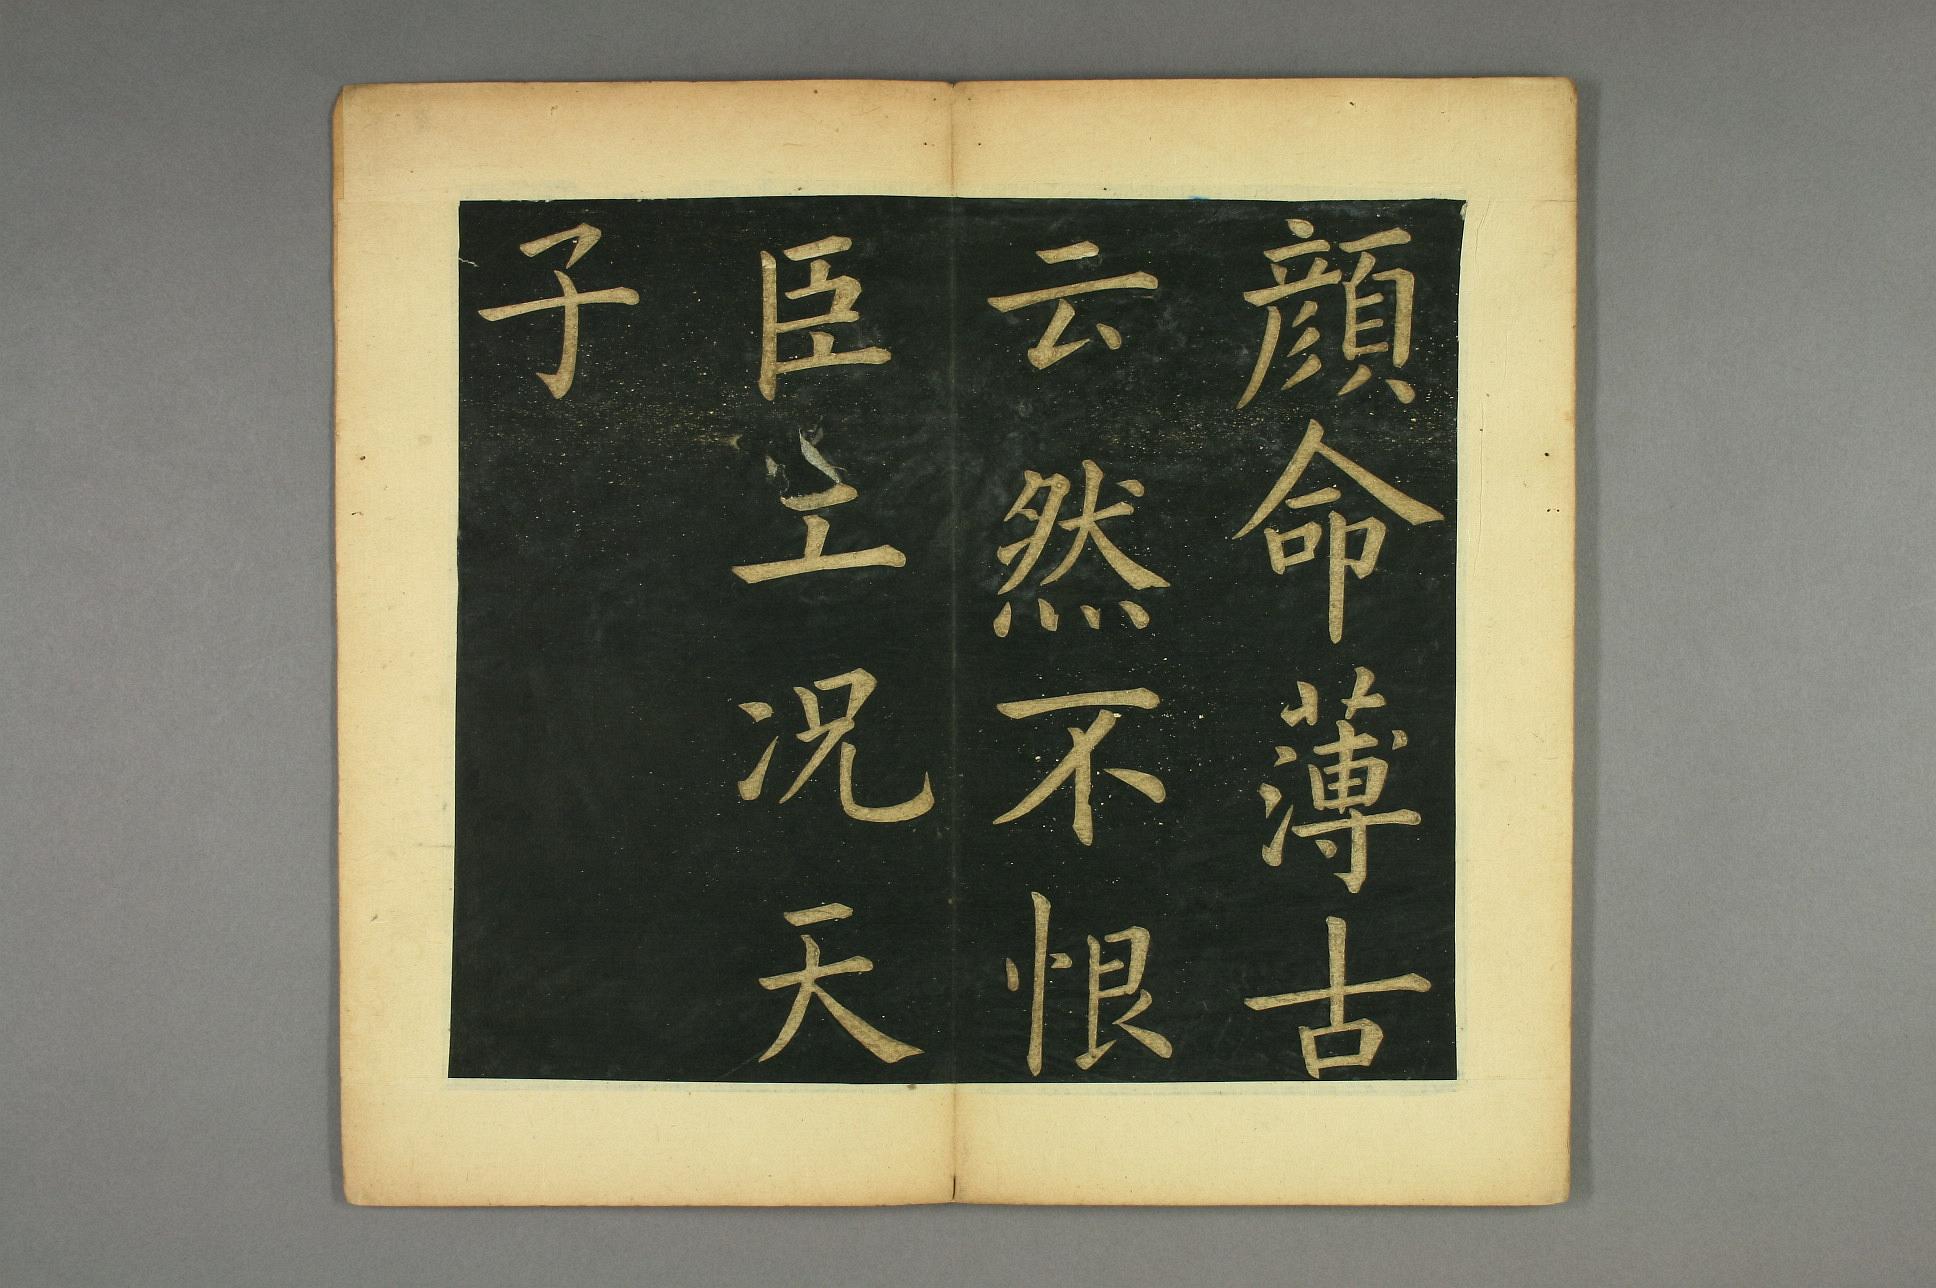 顔命薄古
云然不恨
臣况天
子